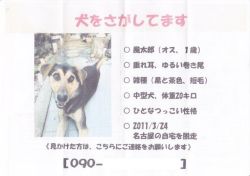 犬をさがしてます
○ 風太郎（オス、１歳）
○ 垂れ耳、ゆるい巻き尾
○ 雑種（黒と茶色、短毛）
○ 中型犬、体重20キロ
○ ひとなつっこい性格
○ 2011/3/24
名古屋の自宅を脱走
（見かけた方は、こちらにご連絡をお願いします）
【090-　　　　　】